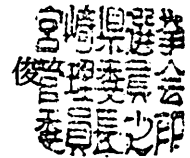 宮崎県選挙
俊
管理委員会
委員長之印